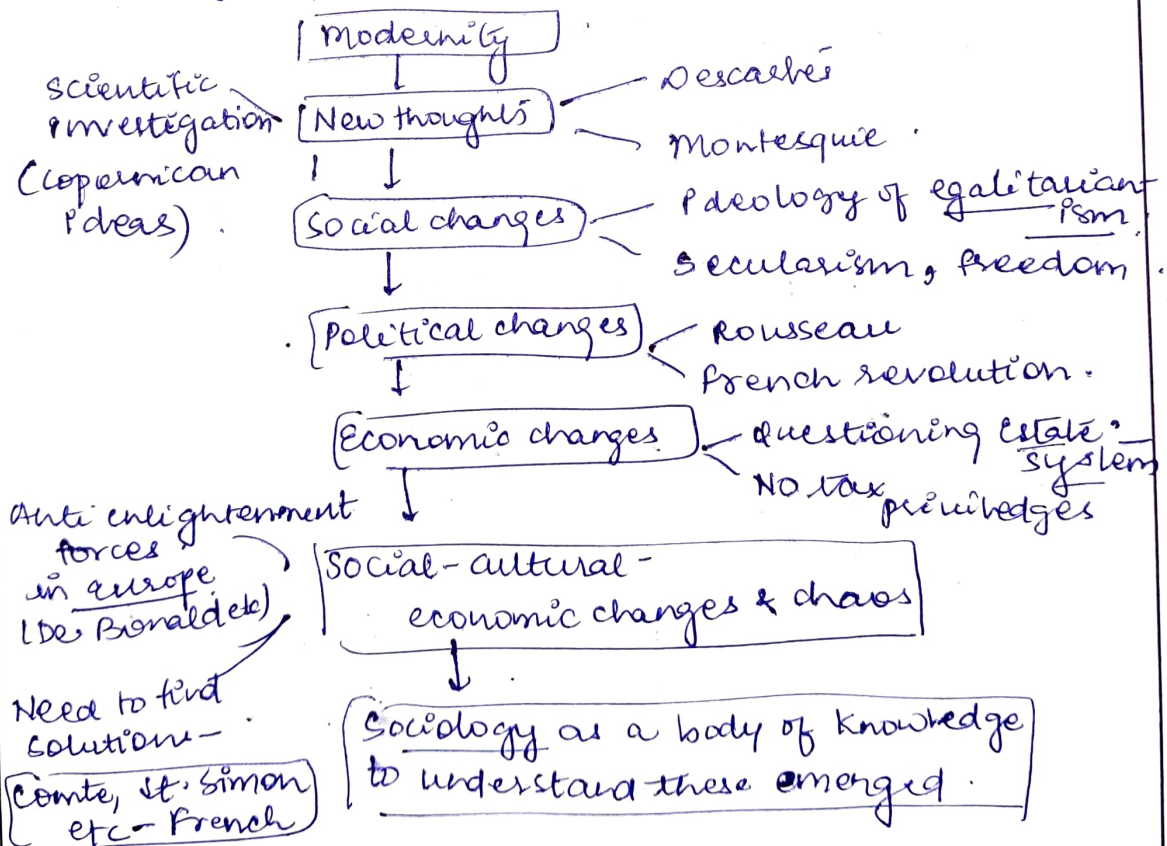 Modernity
scientific
investigation
(copernican
ideas).
New thoughts
Descartes
Montesquie.
social changes
Ideology of egalitarian-
ism
secularism, freedom.
Political changes
Rousseau
french revolution.
Economic changes
questioning Estate-
system
NO tax
priviledges
Anti enlightenment
forces
in europe
(De Bonald etc)
Social-cultural-
economic changes & chaos
Need to find
solutions-
Comte, St. Simon
etc- French
Sociology as a body of knowledge
to understand these emerged.